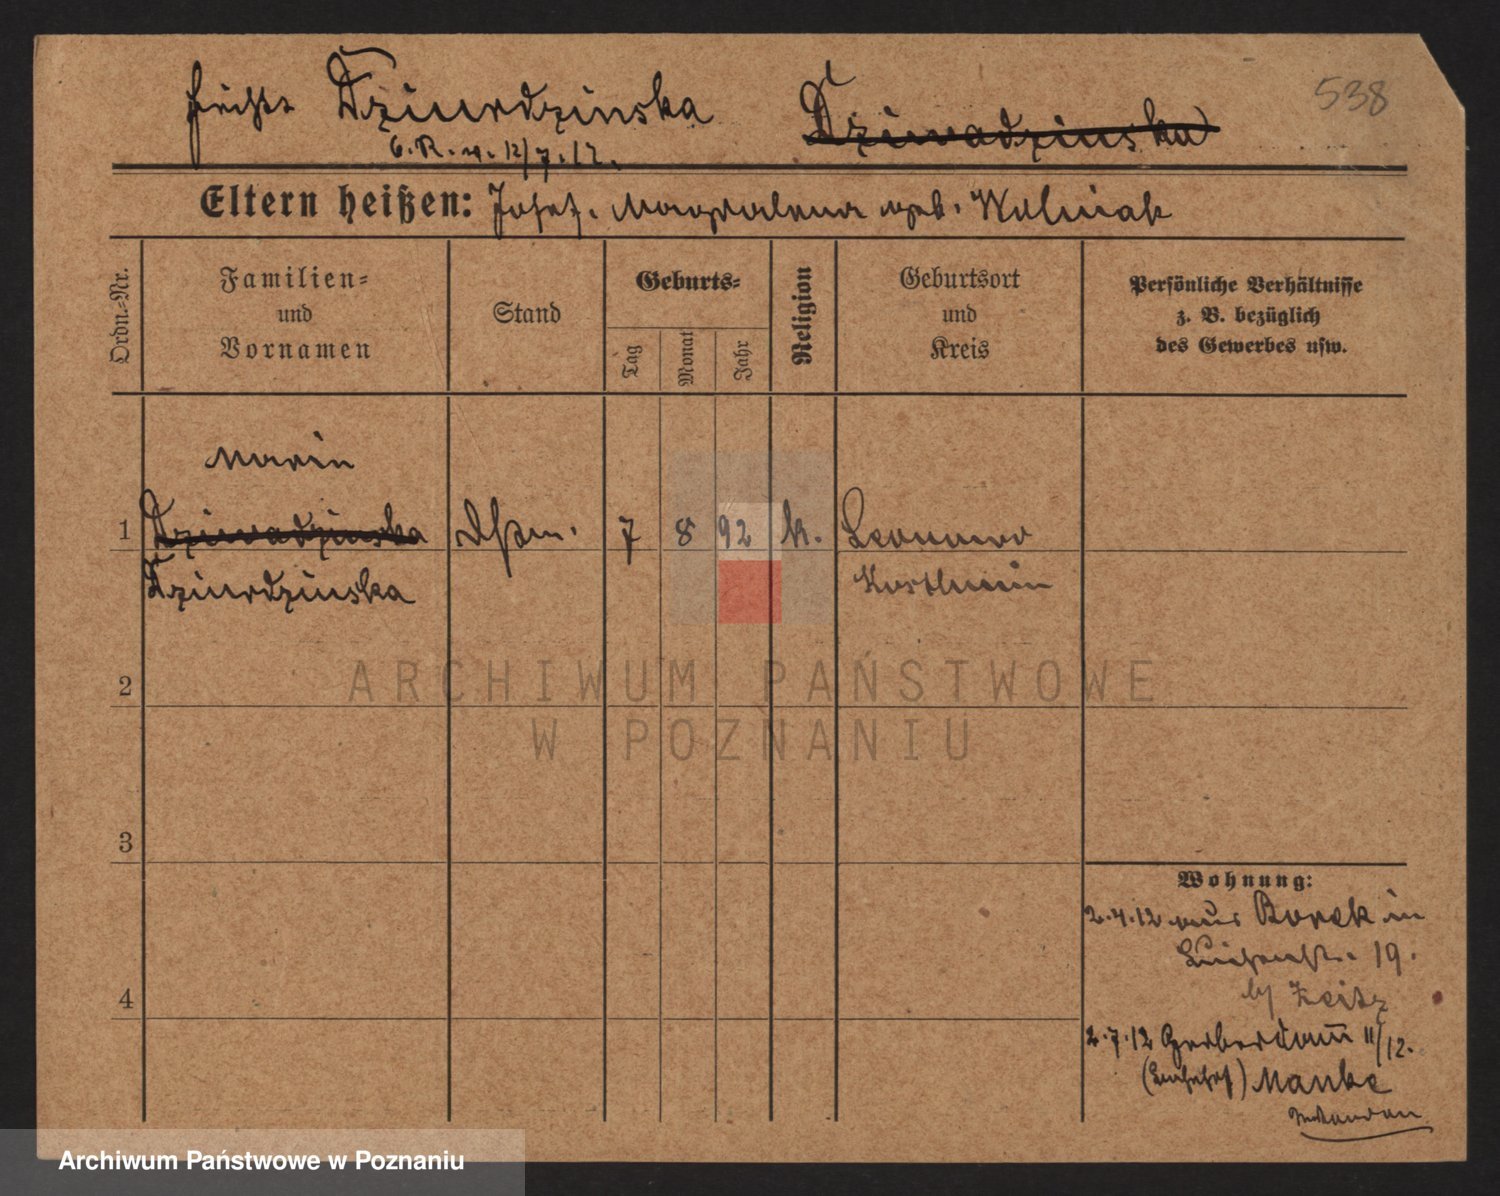 heißt Dziurdzinska Dziwadzinska 538
G. R. v. 12/7.12.
Eltern heißen: Josef. Magdalena geb. Wolniak
Ordn.-Nr.
Familien-
und
Vornamen
Stand
Geburts-
Tag
Monat
Jahr
Religion
Geburtsort
und
Kreis
Persönliche Verhältnisse
z. B. bezüglich
des Gewerbes usw.
Maria
1 Dziwadzinska 7 8 92 k.
Dziurdzinska Koschmin
2
3
4
Wohnung:
2.4.12 aus Borek in
Luisenstr. 19.
by Zeitz
2.7.12 Gerberdamm 11/12.
Manke
ARCHIWUM PAŃSTWOWE
W POZNANIU
Archiwum Państwowe w Poznaniu